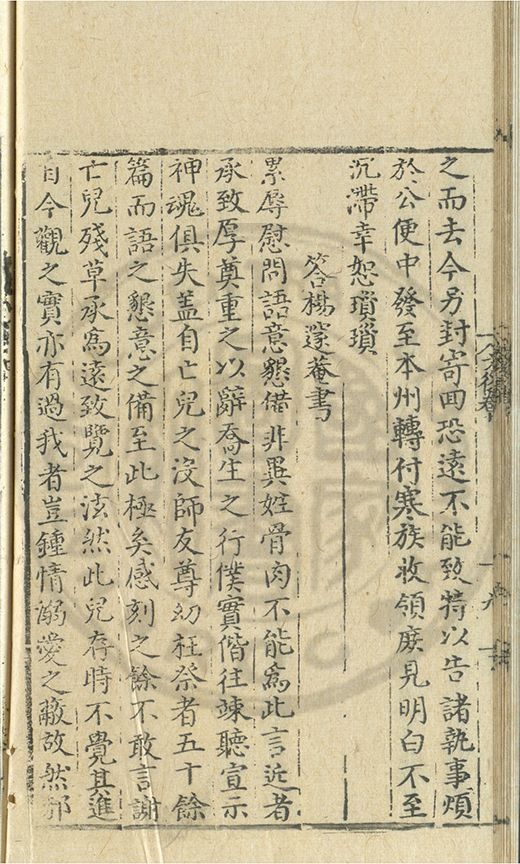 之而去今另封寄回恐遠不能致特以告諸執事煩
於公便中發至本州轉付寒族收領庶見明白不至
沉滯幸恕瑣瑣
答楊邃菴書
累辱慰問語意懇備非異姓骨肉不能爲此言近者
承致厚奠重之以辭喬生之行僕實偕往竦聽宣示
神魂俱失盖自亡兒之沒師友尊幼枉祭者五十餘
篇而語之懇意之備至此極矣感刻之餘不敢言謝
亡兒殘草承爲遠致覽之泫然此兒存時不覺其進
自今觀之實亦有過我者豈鍾情溺愛之蔽故然邪